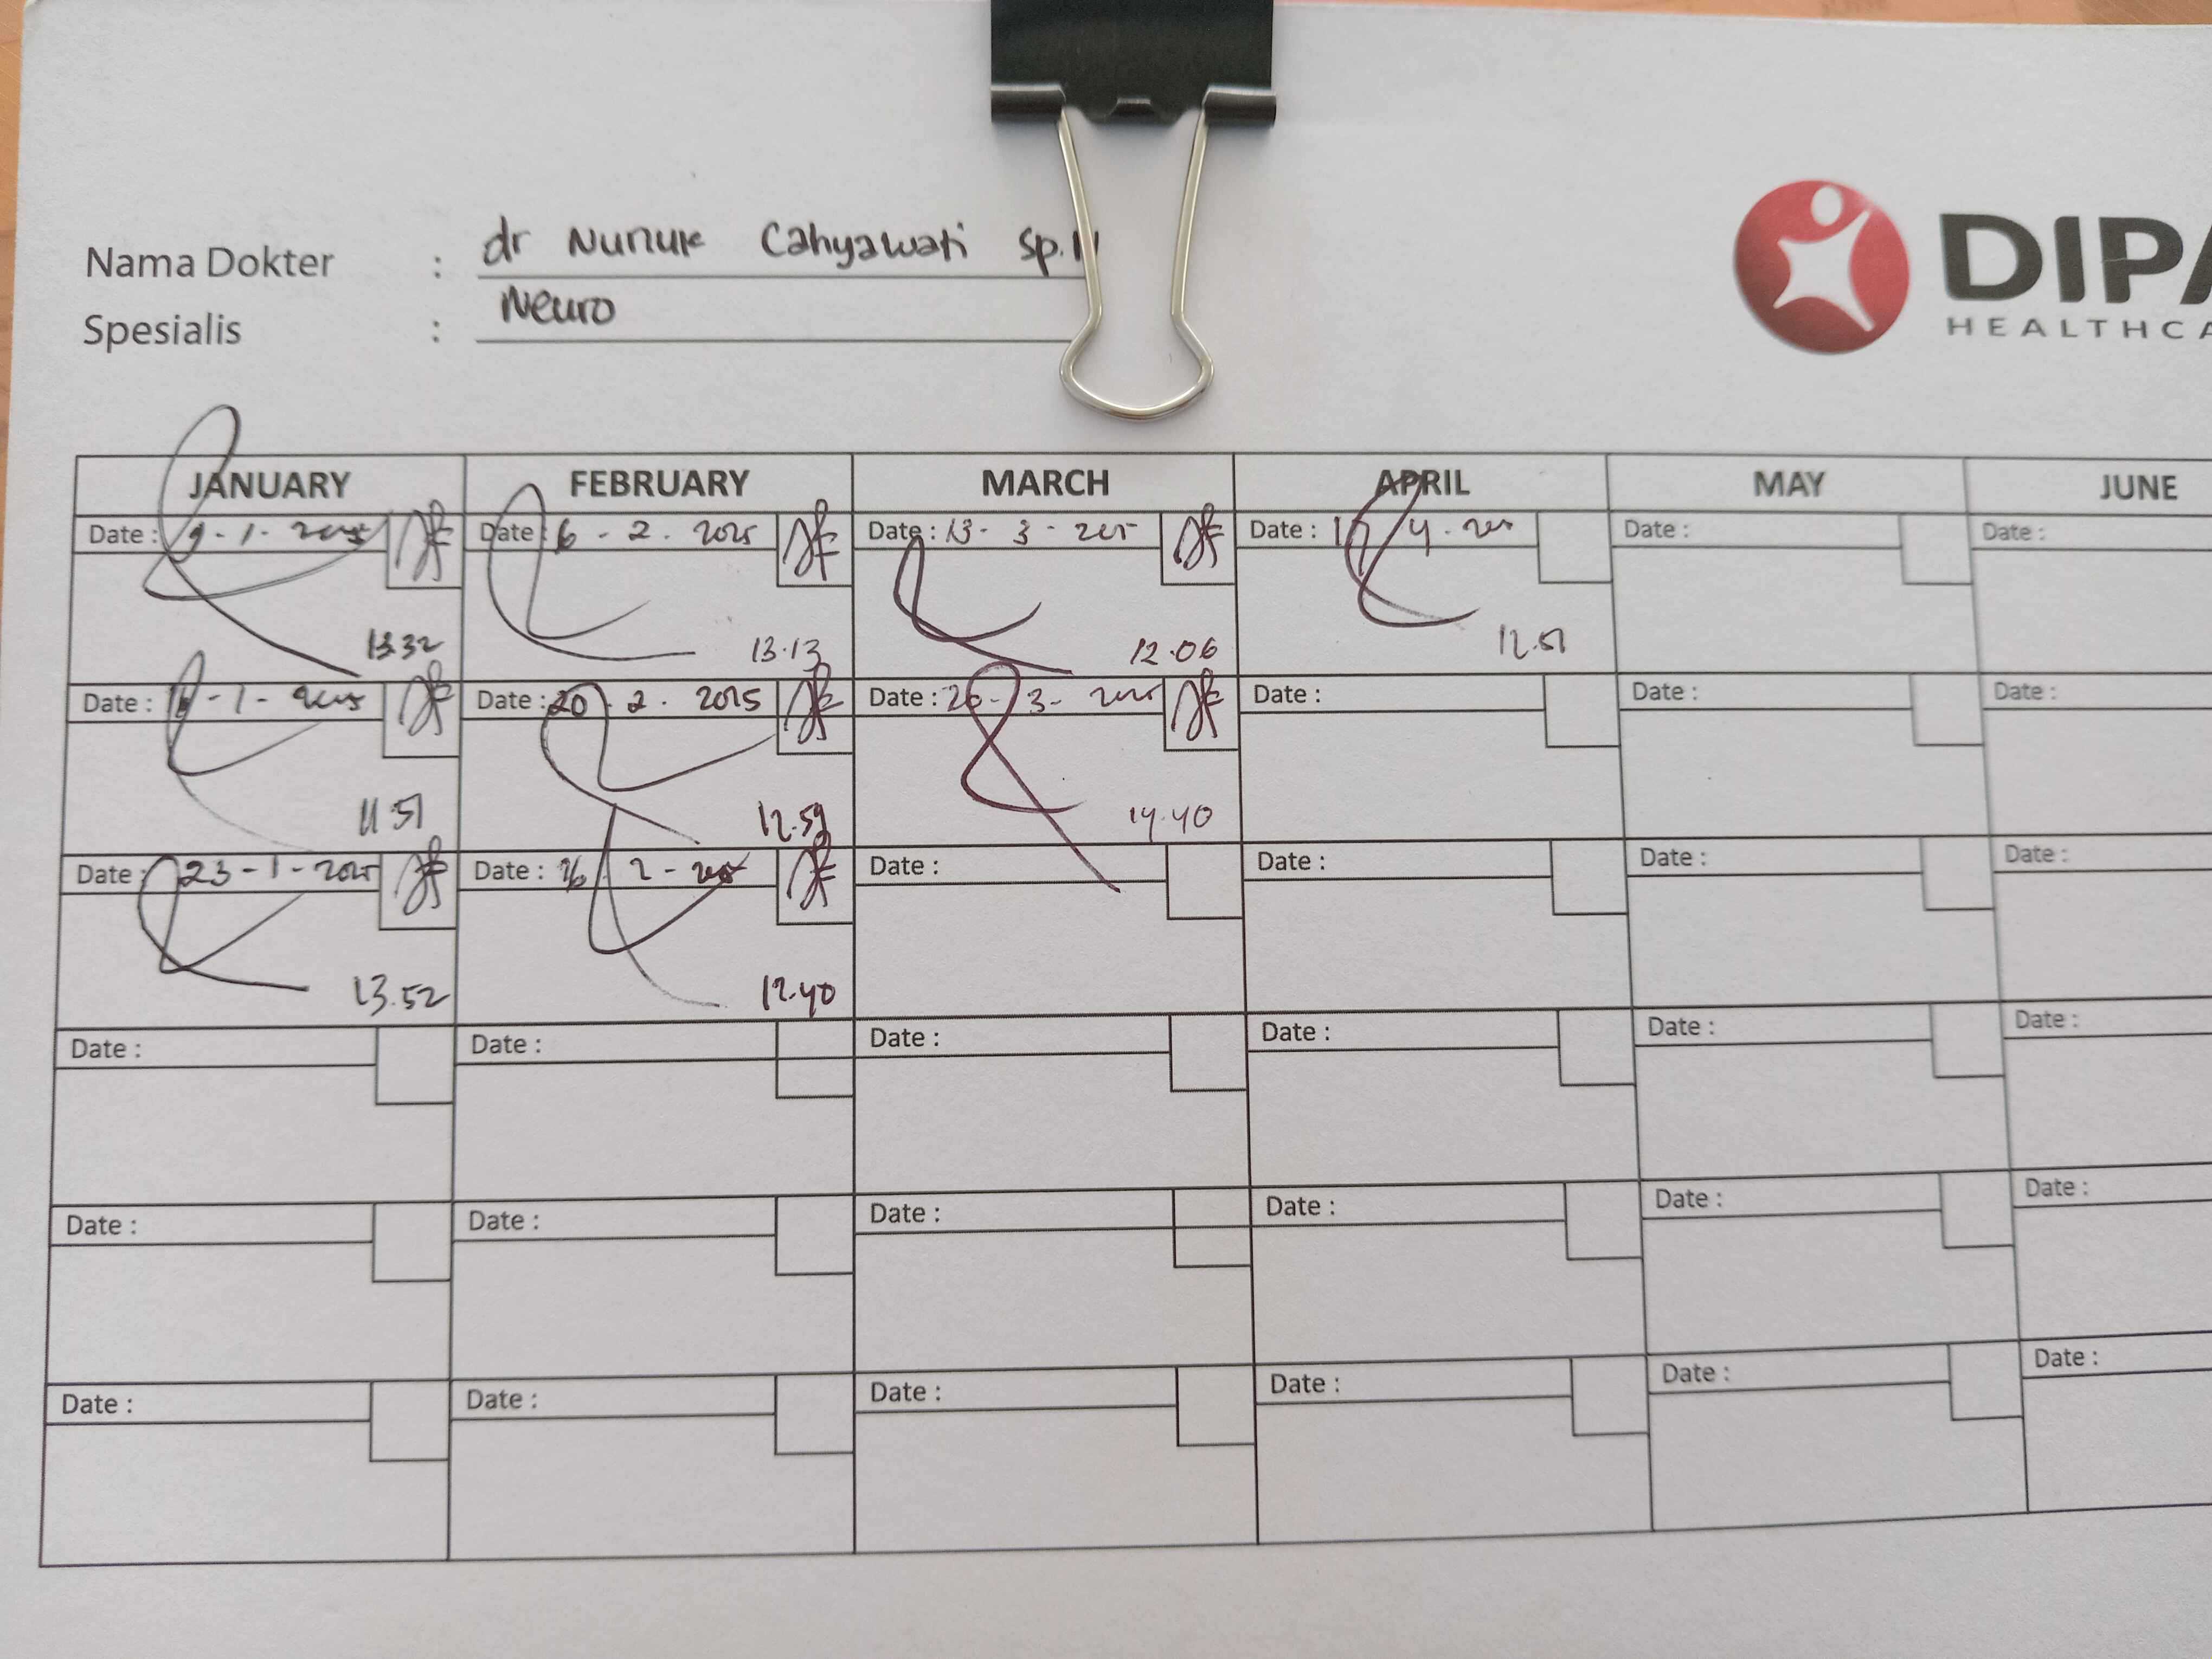 Nama Dokter : dr Nunuk Cahyawati Sp.N
Spesialis : Neuro
DIPA
HEALTHCA
JANUARY FEBRUARY MARCH APRIL MAY JUNE
Date : 9-1-2025 Date : 6-2.2025 Date : 13-3-2025 Date : 17 4. Date : Date :
13.32 13.13 12.06 12.51
Date : -1-2025 Date : 20.2.2025 Date : 26-3-2025 Date : Date : Date :
11.51 12.59 14.40
Date : 23-1-2025 Date : 26 2-2025 Date : Date : Date : Date :
13.52 12.40
Date : Date : Date : Date : Date : Date :
Date : Date : Date : Date : Date : Date :
Date : Date : Date : Date : Date : Date :